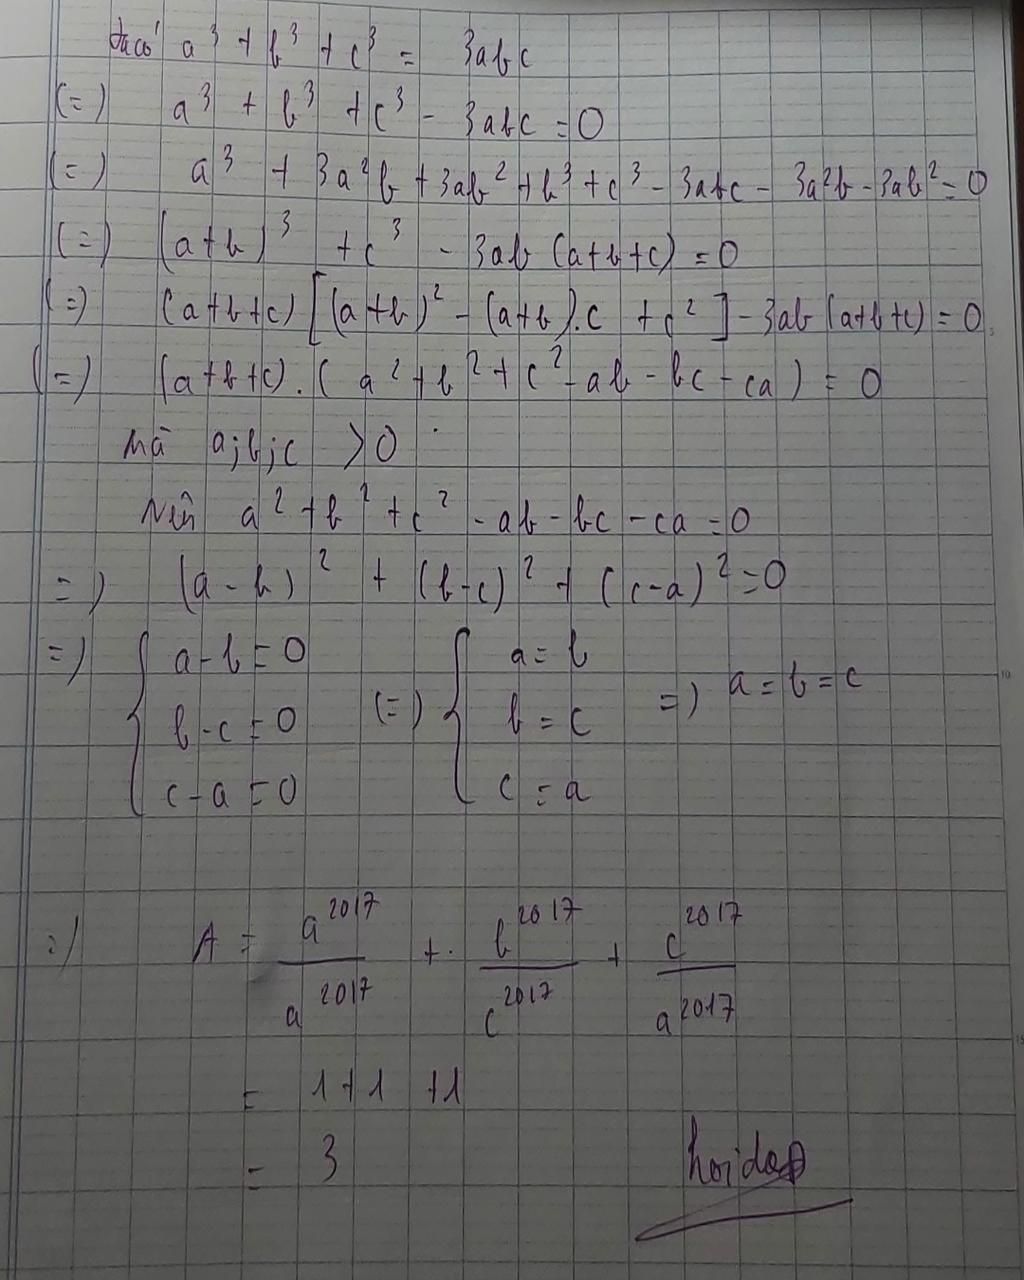 Ta có a³ + b³ + c³ = 3abc
(=) a³ + b³ + c³ - 3abc = 0
(=) a³ + 3a²b + 3ab² + b³ + c³ - 3abc - 3a²b - 3ab² = 0
(=) (a+b)³ + c³ - 3ab (a+b+c) = 0
(=) (a+b+c) [(a+b)² - (a+b).c + c²] - 3ab (a+b+c) = 0
(=) (a+b+c) . (a² + b² + c² - ab - bc - ca) = 0
Mà a;b;c > 0
Nên a² + b² + c² - ab - bc - ca = 0
=) (a-b)² + (b-c)² + (c-a)² = 0
=) { a-b = 0 (=) { a = b =) a = b = c
b-c = 0 b = c
c-a = 0 c = a
=) A = a²⁰¹⁷/a²⁰¹⁷ + b²⁰¹⁷/c²⁰¹⁷ + c²⁰¹⁷/a²⁰¹⁷
= 1 + 1 + 1
= 3
hoidap